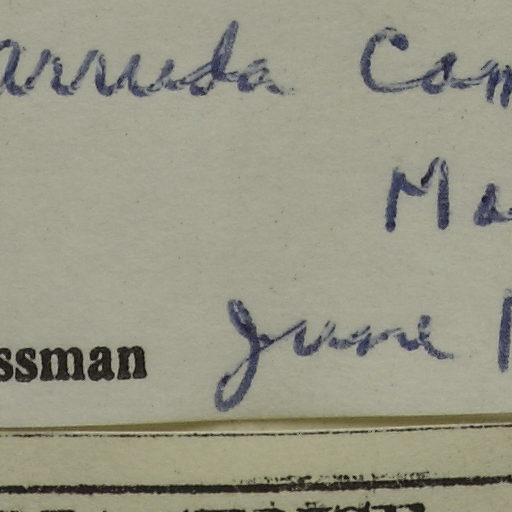 arruda Cam
Ma
ssman June 1